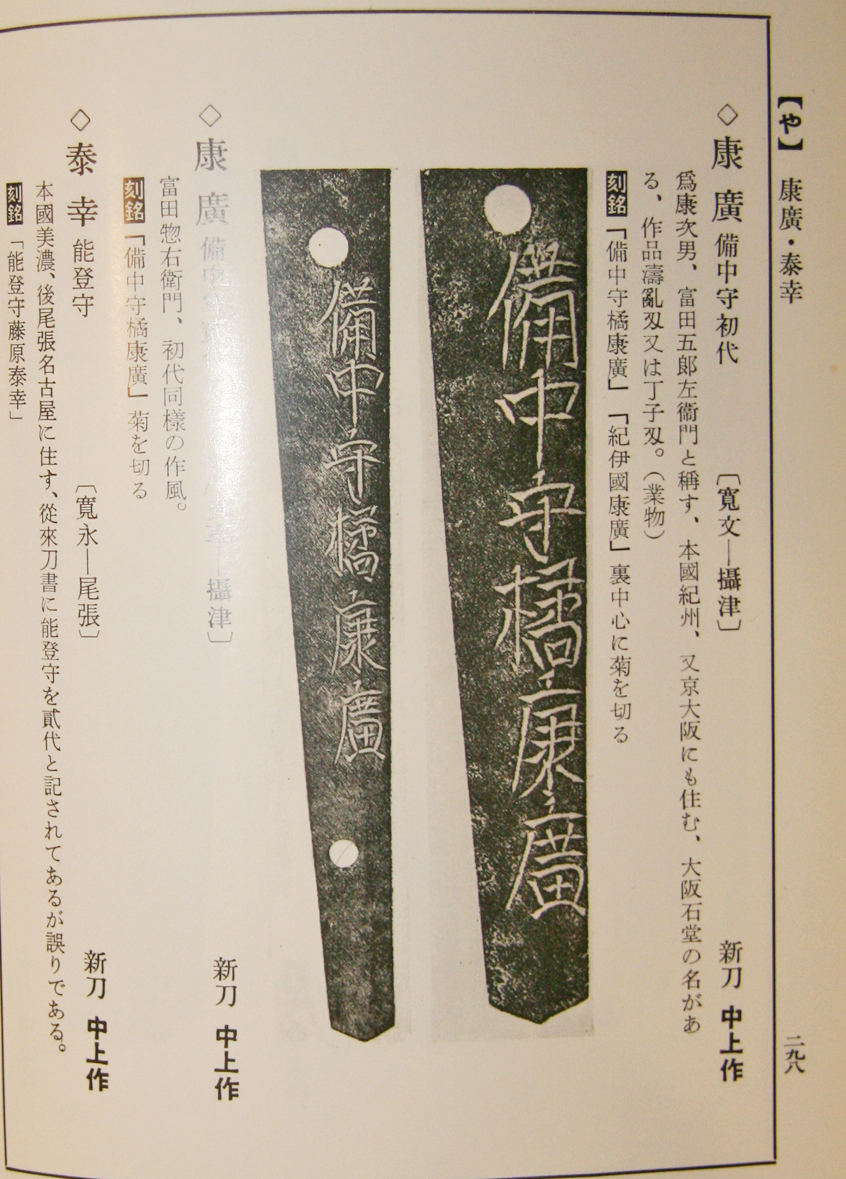 【や】 康廣・泰幸
二九八
◇康廣 備中守初代 〔寬文―攝津〕 新刀 中上作
爲康次男、富田五郞左衞門と稱す、本國紀州、又京大阪にも住む、大阪石堂の名があ
る、作品濤亂刄又は丁子刄。(業物)
刻銘「備中守橘康廣」「紀伊國康廣」裏中心に菊を切る
備中守橘康廣
備中守橘康廣
◇康廣 備中守 ―攝津〕 新刀 中上作
富田惣右衞門、初代同樣の作風。
刻銘「備中守橘康廣」菊を切る
◇泰幸 能登守 〔寬永―尾張〕 新刀 中上作
本國美濃、後尾張名古屋に住す、從來刀書に能登守を貳代と記されてあるが誤りである。
刻銘「能登守藤原泰幸」